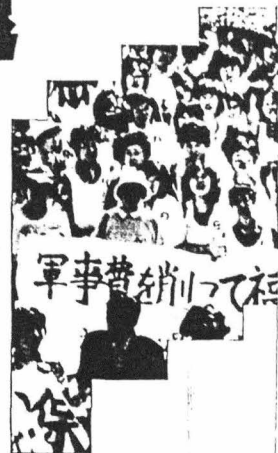 軍事費を削って福
保